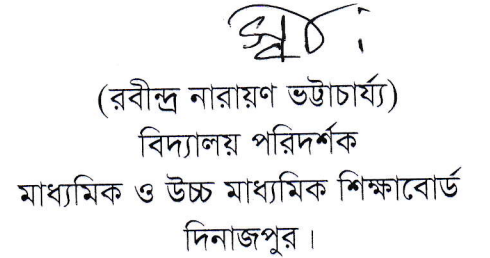 স্বাঃ
(রবীন্দ্র নারায়ণ ভট্টাচার্য্য)
বিদ্যালয় পরিদর্শক
মাধ্যমিক ও উচ্চ মাধ্যমিক শিক্ষাবোর্ড
দিনাজপুর।